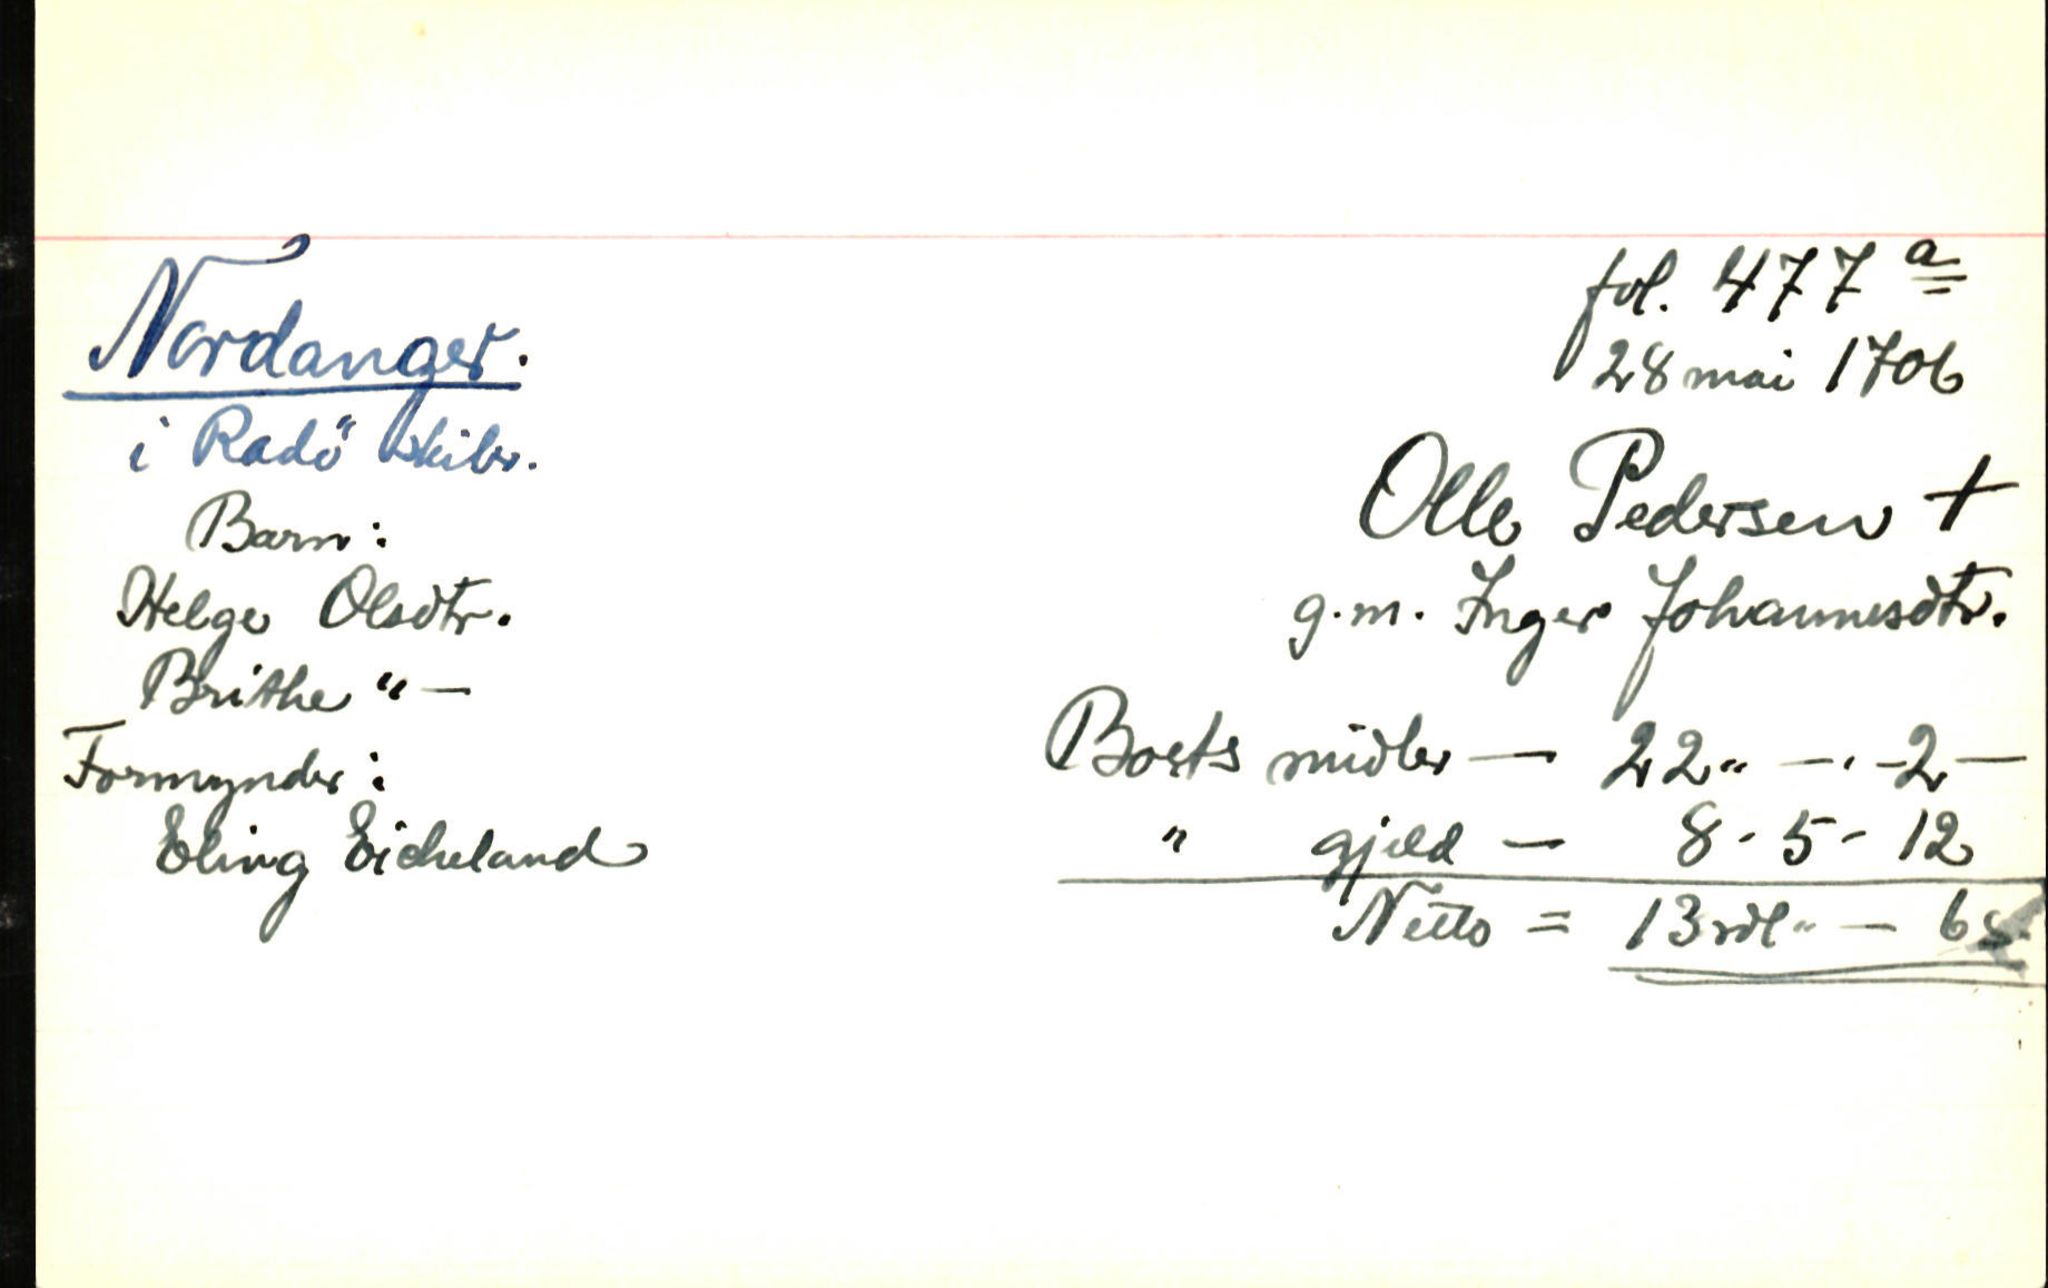 Nordanger.
i Radö skibr.
Barn:
Helge Olsdtr.
Brithe "—
Formynder:
Eling Eicheland
fol. 477 a
28 mai 1706
Olle Pedersen +
g.m. Inger Johannesdtr.
Boets midler — 22" — " - 2 —
" gjeld — 8 - 5 - 12
Netto = 13 rdl " — 6 s.